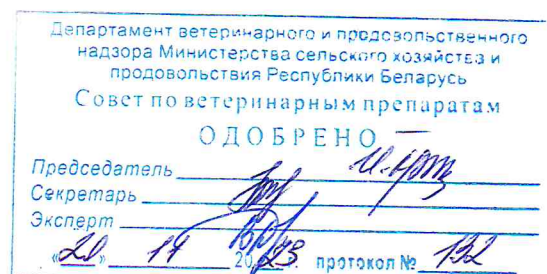 Департамент ветеринарного и продовольственного
надзора Министерства сельского хозяйства и
продовольствия Республики Беларусь
Совет по ветеринарным препаратам
ОДОБРЕНО
Председатель
Секретарь
Эксперт
«20» 2023 г. протокол № 132